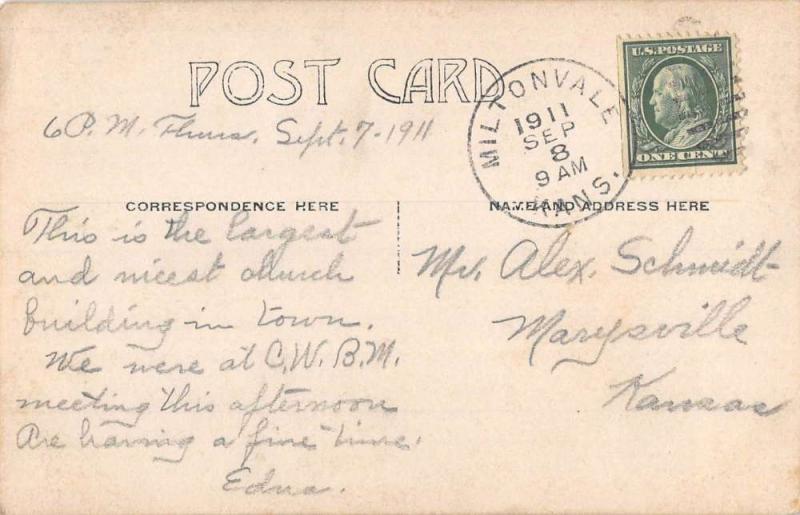 U.S. POSTAGE
ONE CENT
POST CARD
MILTONVALE
1911
SEP
8
9 AM
KANS.
6 P.M. Thurs. Sept. 7-1911
CORRESPONDENCE HERE
NAME AND ADDRESS HERE
This is the largest
and nicest church
building in town.
We were at C.W.B.M.
meeting this afternoon
Are having a fine time.
Edna.
Mr. Alex. Schmidt
Marysville
Kansas